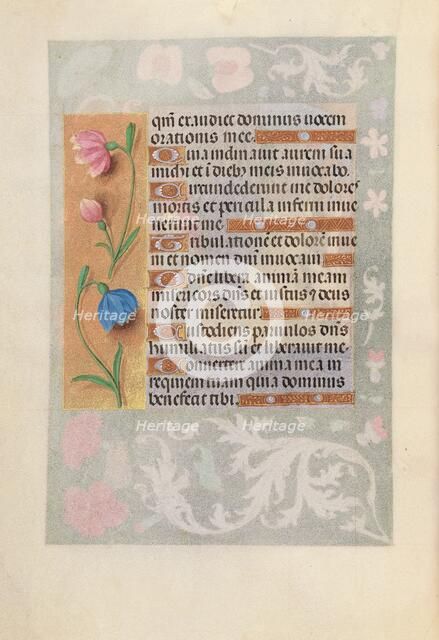 qm̄ exaudiet dominus uocem
orationis mee.
Quia inclinauit aurem sua
michi et ī dieb9 meis inuocabo.
Circundederunt me dolores
mortis et pericula inferni inue
nerunt me.
Tribulationē et dolorē inue
ni et nomen dnī inuocaui
O dn̄e libera animā meam
misericors dn̄s et iustus ⁊ deus
noster miseretur.
Custodiens paruulos dn̄s
humiliatus sū et liberauit me.
Conuertere anima mea in
requiem tuam quia dominus
benefecit tibi.
Heritage Heritage Heritage
Heritage Heritage Heritage
Heritage Heritage